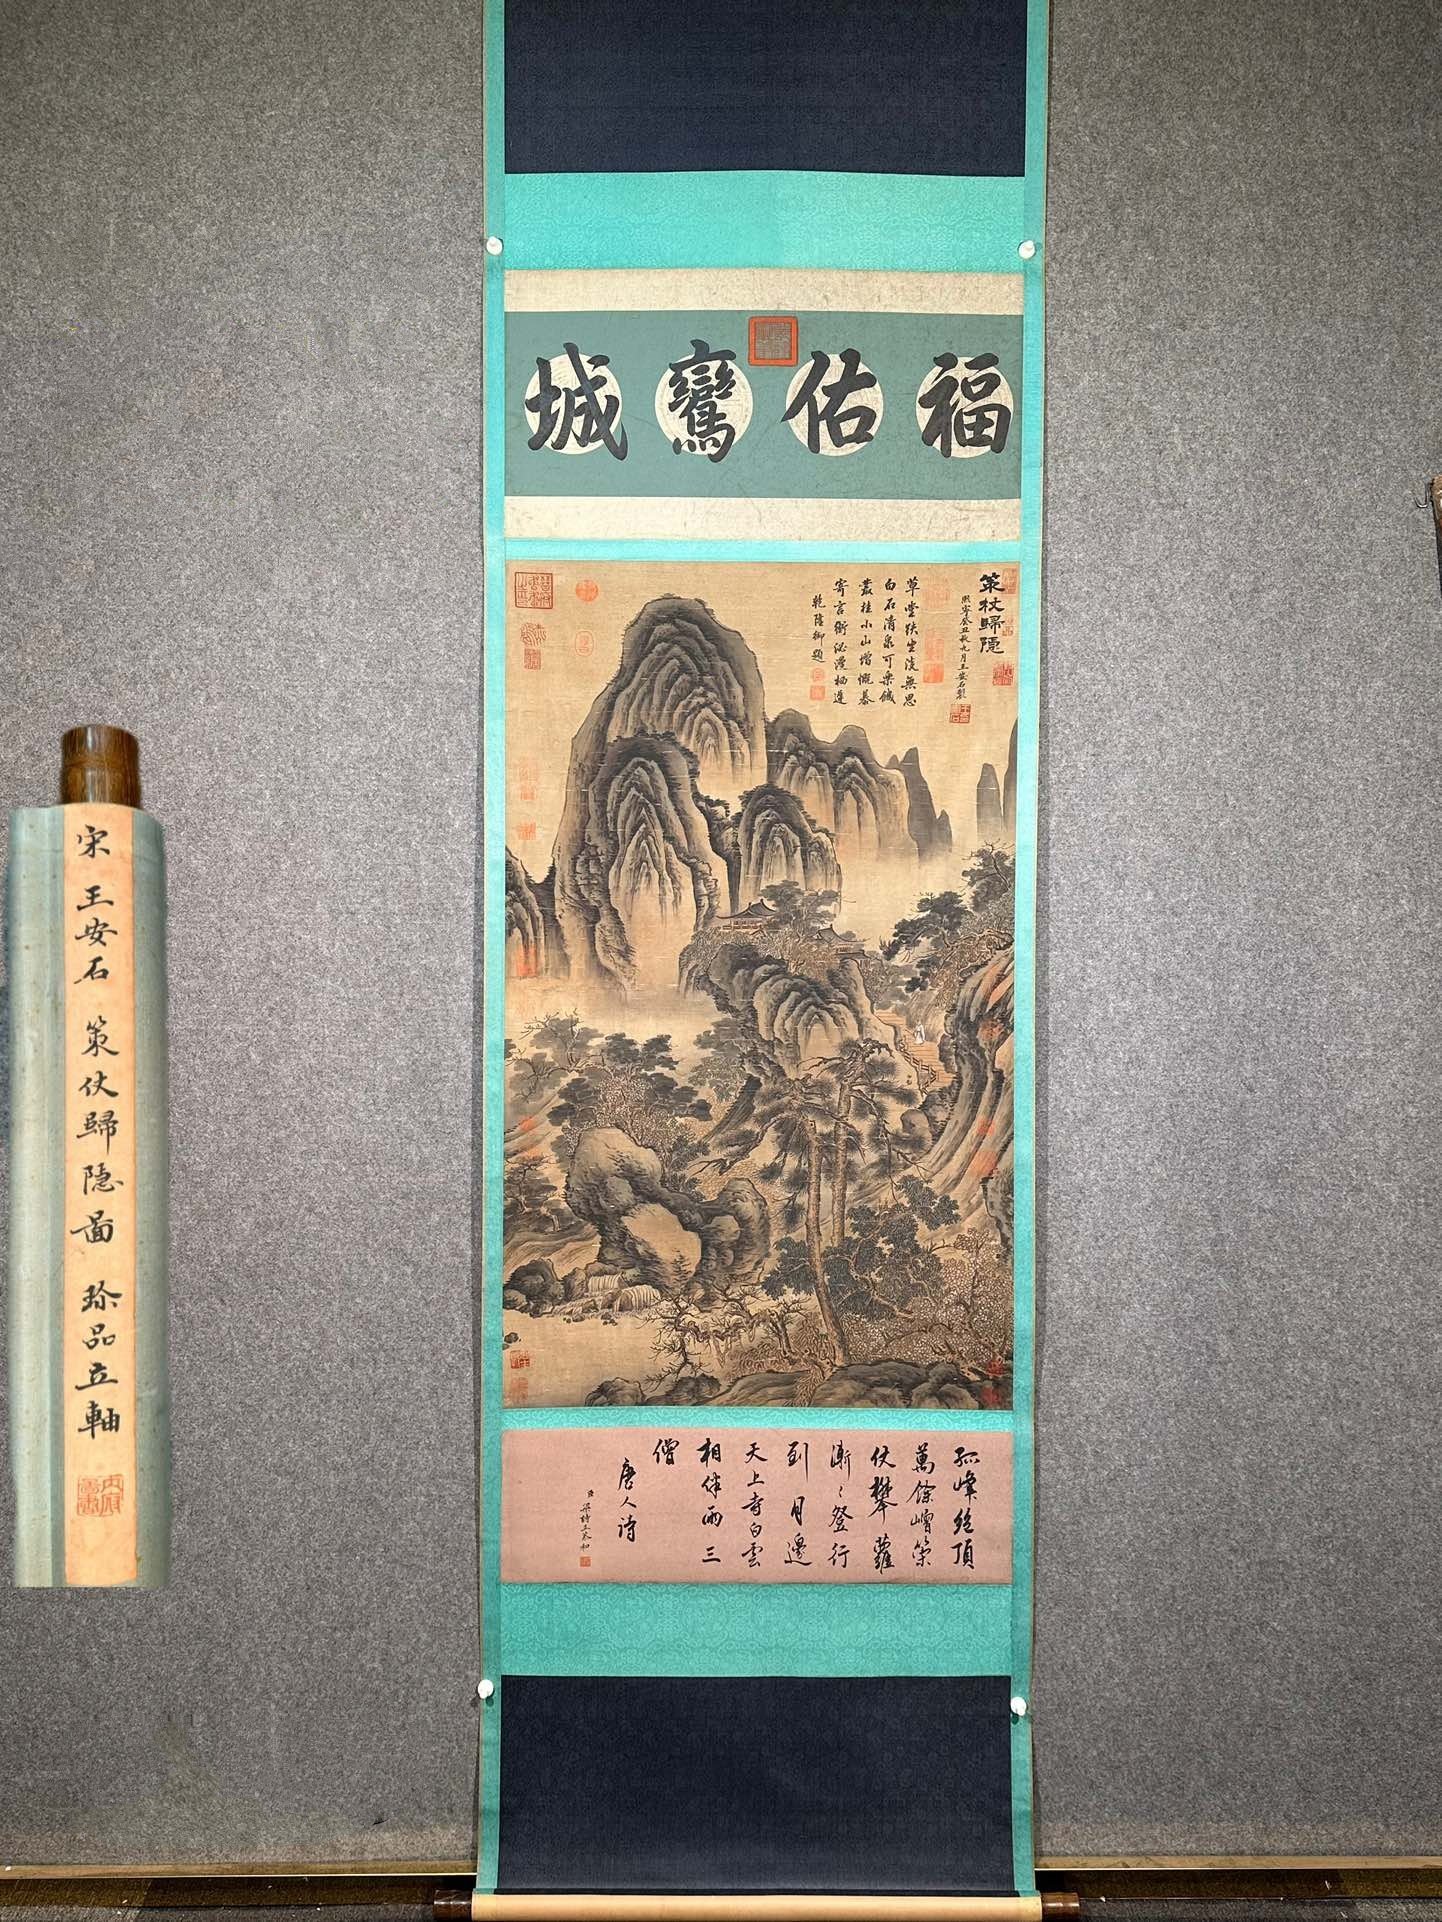 福佑鸞城
策杖歸隱
熙寧癸丑秋九月王安石製
草堂趺坐淡無思
白石清泉可樂饑
叢桂小山增慨慕
寄言衡泌漫栖遲
乾隆御題
孤峰絕頂
萬餘嶒策
仗攀蘿
漸〻登行
到月邊
天上寺白雲
相伴兩三
僧
唐人詩
臣梁詩正恭和
宋王安石策仗歸隱圖珍品立軸